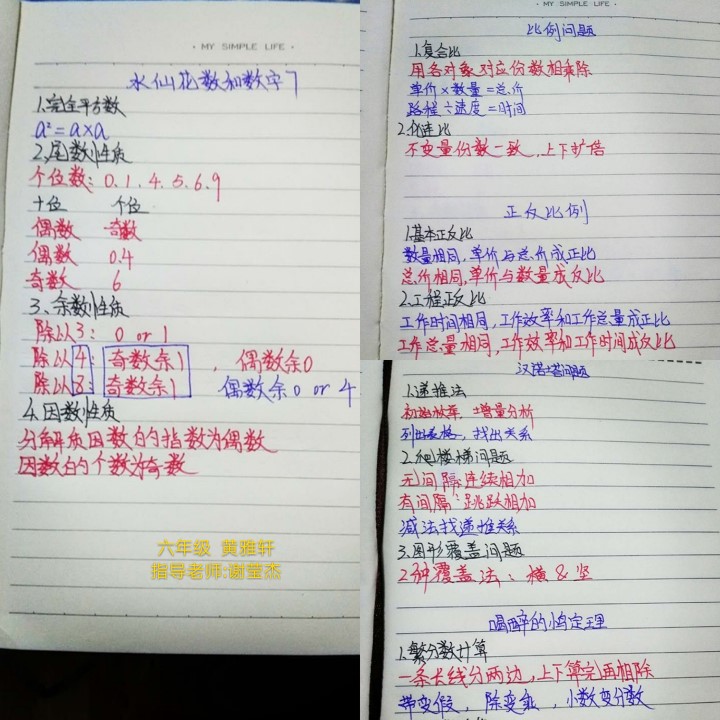 · MY SIMPLE LIFE ·
水仙花数和数字7
1.完全平方数
a²=a×a
2.尾数性质
个位数:0.1.4.5.6.9
十位 个位
偶数 奇数
偶数 0.4
奇数 6
3、余数性质
除以3: 0 or 1
除以4: 奇数余1 , 偶数余0
除以8: 奇数余1 偶数余0 or 4
4.因数性质
分解质因数的指数为偶数
因数的个数为奇数
六年级 黄雅轩
指导老师:谢莹杰
· MY SIMPLE LIFE ·
比例问题
1.复合比
用各对象对应份数相乘除
单价×数量=总价
路程÷速度=时间
2.化连比
不变量份数一致,上下扩倍
正反比例
1.基本正反比
数量相同,单价与总价成正比
总价相同,单价与数量成反比
2.工程正反比
工作时间相同,工作效率和工作总量成正比
工作总量相同,工作效率和工作时间成反比
汉诺塔问题
1.递推法
增量分析
列出表格,找出关系
2.爬楼梯问题
无间隔:连续相加
有间隔:跳跃相加
减法找递推关系
3.图形覆盖问题
2种覆盖法:横&竖
喝醉的鸽定理
1.繁分数计算
一条长线分两边,上下算完再相除
带变假,除变乘,小数变分数